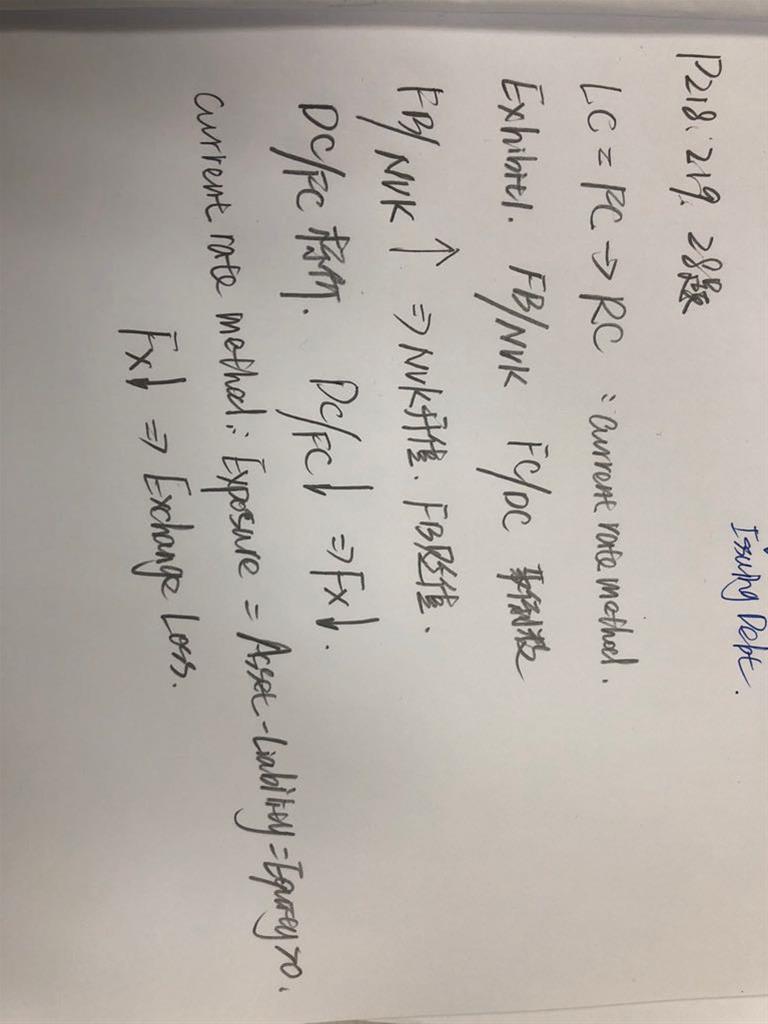 Issuing Debt.
P218. 219. 28题
LC = FC → RC : current rate method.
Exhibit1. FB/NVK FC/DC 求倒数
FB/NVK ↑ ⇒ NVK升值. FB贬值.
DC/FC 标价. DC/FC↓ ⇒ Fx↓.
Current rate method: Exposure = Asset-Liability = Equity>0.
Fx↓ ⇒ Exchange Loss.